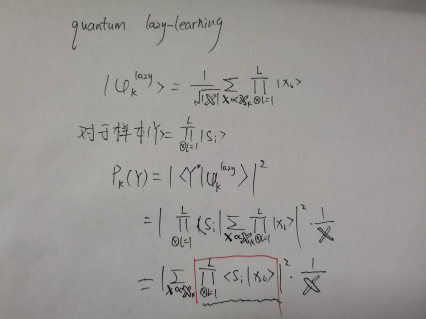 quantum lazy-learning
|φ_k^lazy> = 1/√|𝕏| ∑_{x∝𝕏_k} ∏_{⊗i=1}^L |x_i>
对于样本|Y>= ∏_{⊗i=1}^L |s_i>
P_k(Y) = |<Y*|φ_k^lazy>|^2
= | ∏_{⊗i=1}^L <s_i| ∑_{x∝𝕏_k} ∏_{⊗i=1}^L |x_i> |^2 · 1/𝕏
= | ∑_{x∝𝕏_k} ∏_{⊗i=1}^L <s_i|x_i> |^2 · 1/𝕏